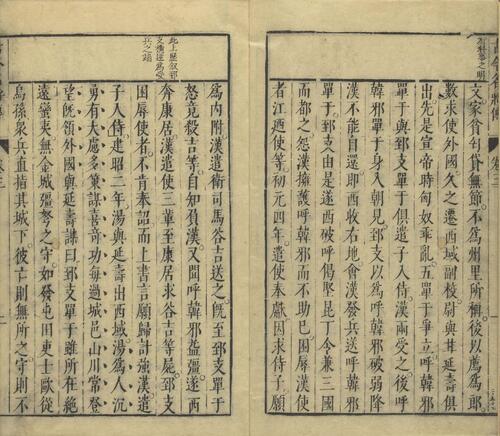 文家貧匄貸無節不爲州里所稱後以薦爲郎
數求使外國久之遷西域副校尉與甘延壽俱
出先是宣帝時匈奴乖亂五單于爭立呼韓邪
單于與郅支單于俱遣子入侍漢兩受之後呼
韓邪單于身入朝見郅支以爲呼韓邪破弱降
漢不能自還即西收右地會漢發兵送呼韓邪
單于郅支由是遂西破呼偈堅昆丁令兼三國
而都之怨漢擁護呼韓邪而不助已困辱漢使
者江迺使等初元四年遣使奉獻因求侍子願
爲內附漢遣衛司馬谷吉送之旣至郅支單于
怒竟殺吉等自知負漢又聞呼韓邪益彊遂西
奔康居漢遣使三輩至康居求谷吉等屍郅支
困辱使者不肯奉詔而上書言願歸計強漢遣
子入侍建昭二年湯與延壽出西域湯爲人沉
勇有大慮多策謀喜奇功每過城邑山川常登
望旣領外國與延壽謀曰郅支單于雖所在絶
遠蠻夷無金城彊弩之守如發屯田吏士歐從
烏孫衆兵直指其城下彼亡則無所之守則不
此上歷叙郅
支橫逆爲受
兵之端